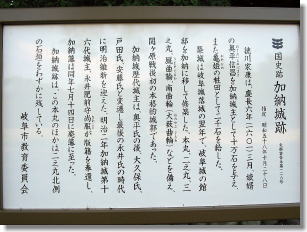 国史跡 加納城跡
指定 昭和五十八年十月二十八日
徳川家康は、慶長六年(一六〇一)三月、娘婿
の奥平信昌を加納城主として十万石を与え、
また亀姫の粧田として二千石を給した。
築城は岐阜城落城の翌年で、岐阜城の館
邸を加納に移して修築した。本丸、二之丸、三
之丸、厩曲輪、南曲輪(大薮曲輪)などを備え、
関ヶ原戦後初の本格的城郭であった。
加納城歴代城主は、奥平氏の後、大久保氏、
戸田氏、安藤氏と変遷し最後の永井氏の時代
に明治維新を迎えた。明治二年加納城第十
六代城主、永井肥前守尚服が版籍を奉還し、
加納藩は同年七月十四日に廃藩に至った。
加納城跡は、この本丸のほかは二之丸北側
の石垣をわずかに残している。
岐阜市教育委員会